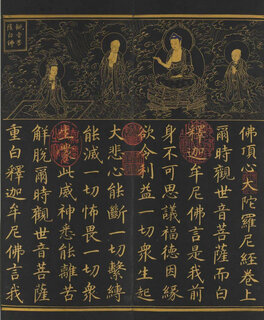 佛頂心大陀羅尼經卷上
爾時觀世音菩薩而白
釋迦牟尼佛言是我前
身不可思議福德因緣
欲令利益一切眾生起
大悲心能斷一切繫縛
能滅一切怖畏一切眾
生蒙此威神悉能離苦
解脫爾時觀世音菩薩
重白釋迦牟尼佛言我